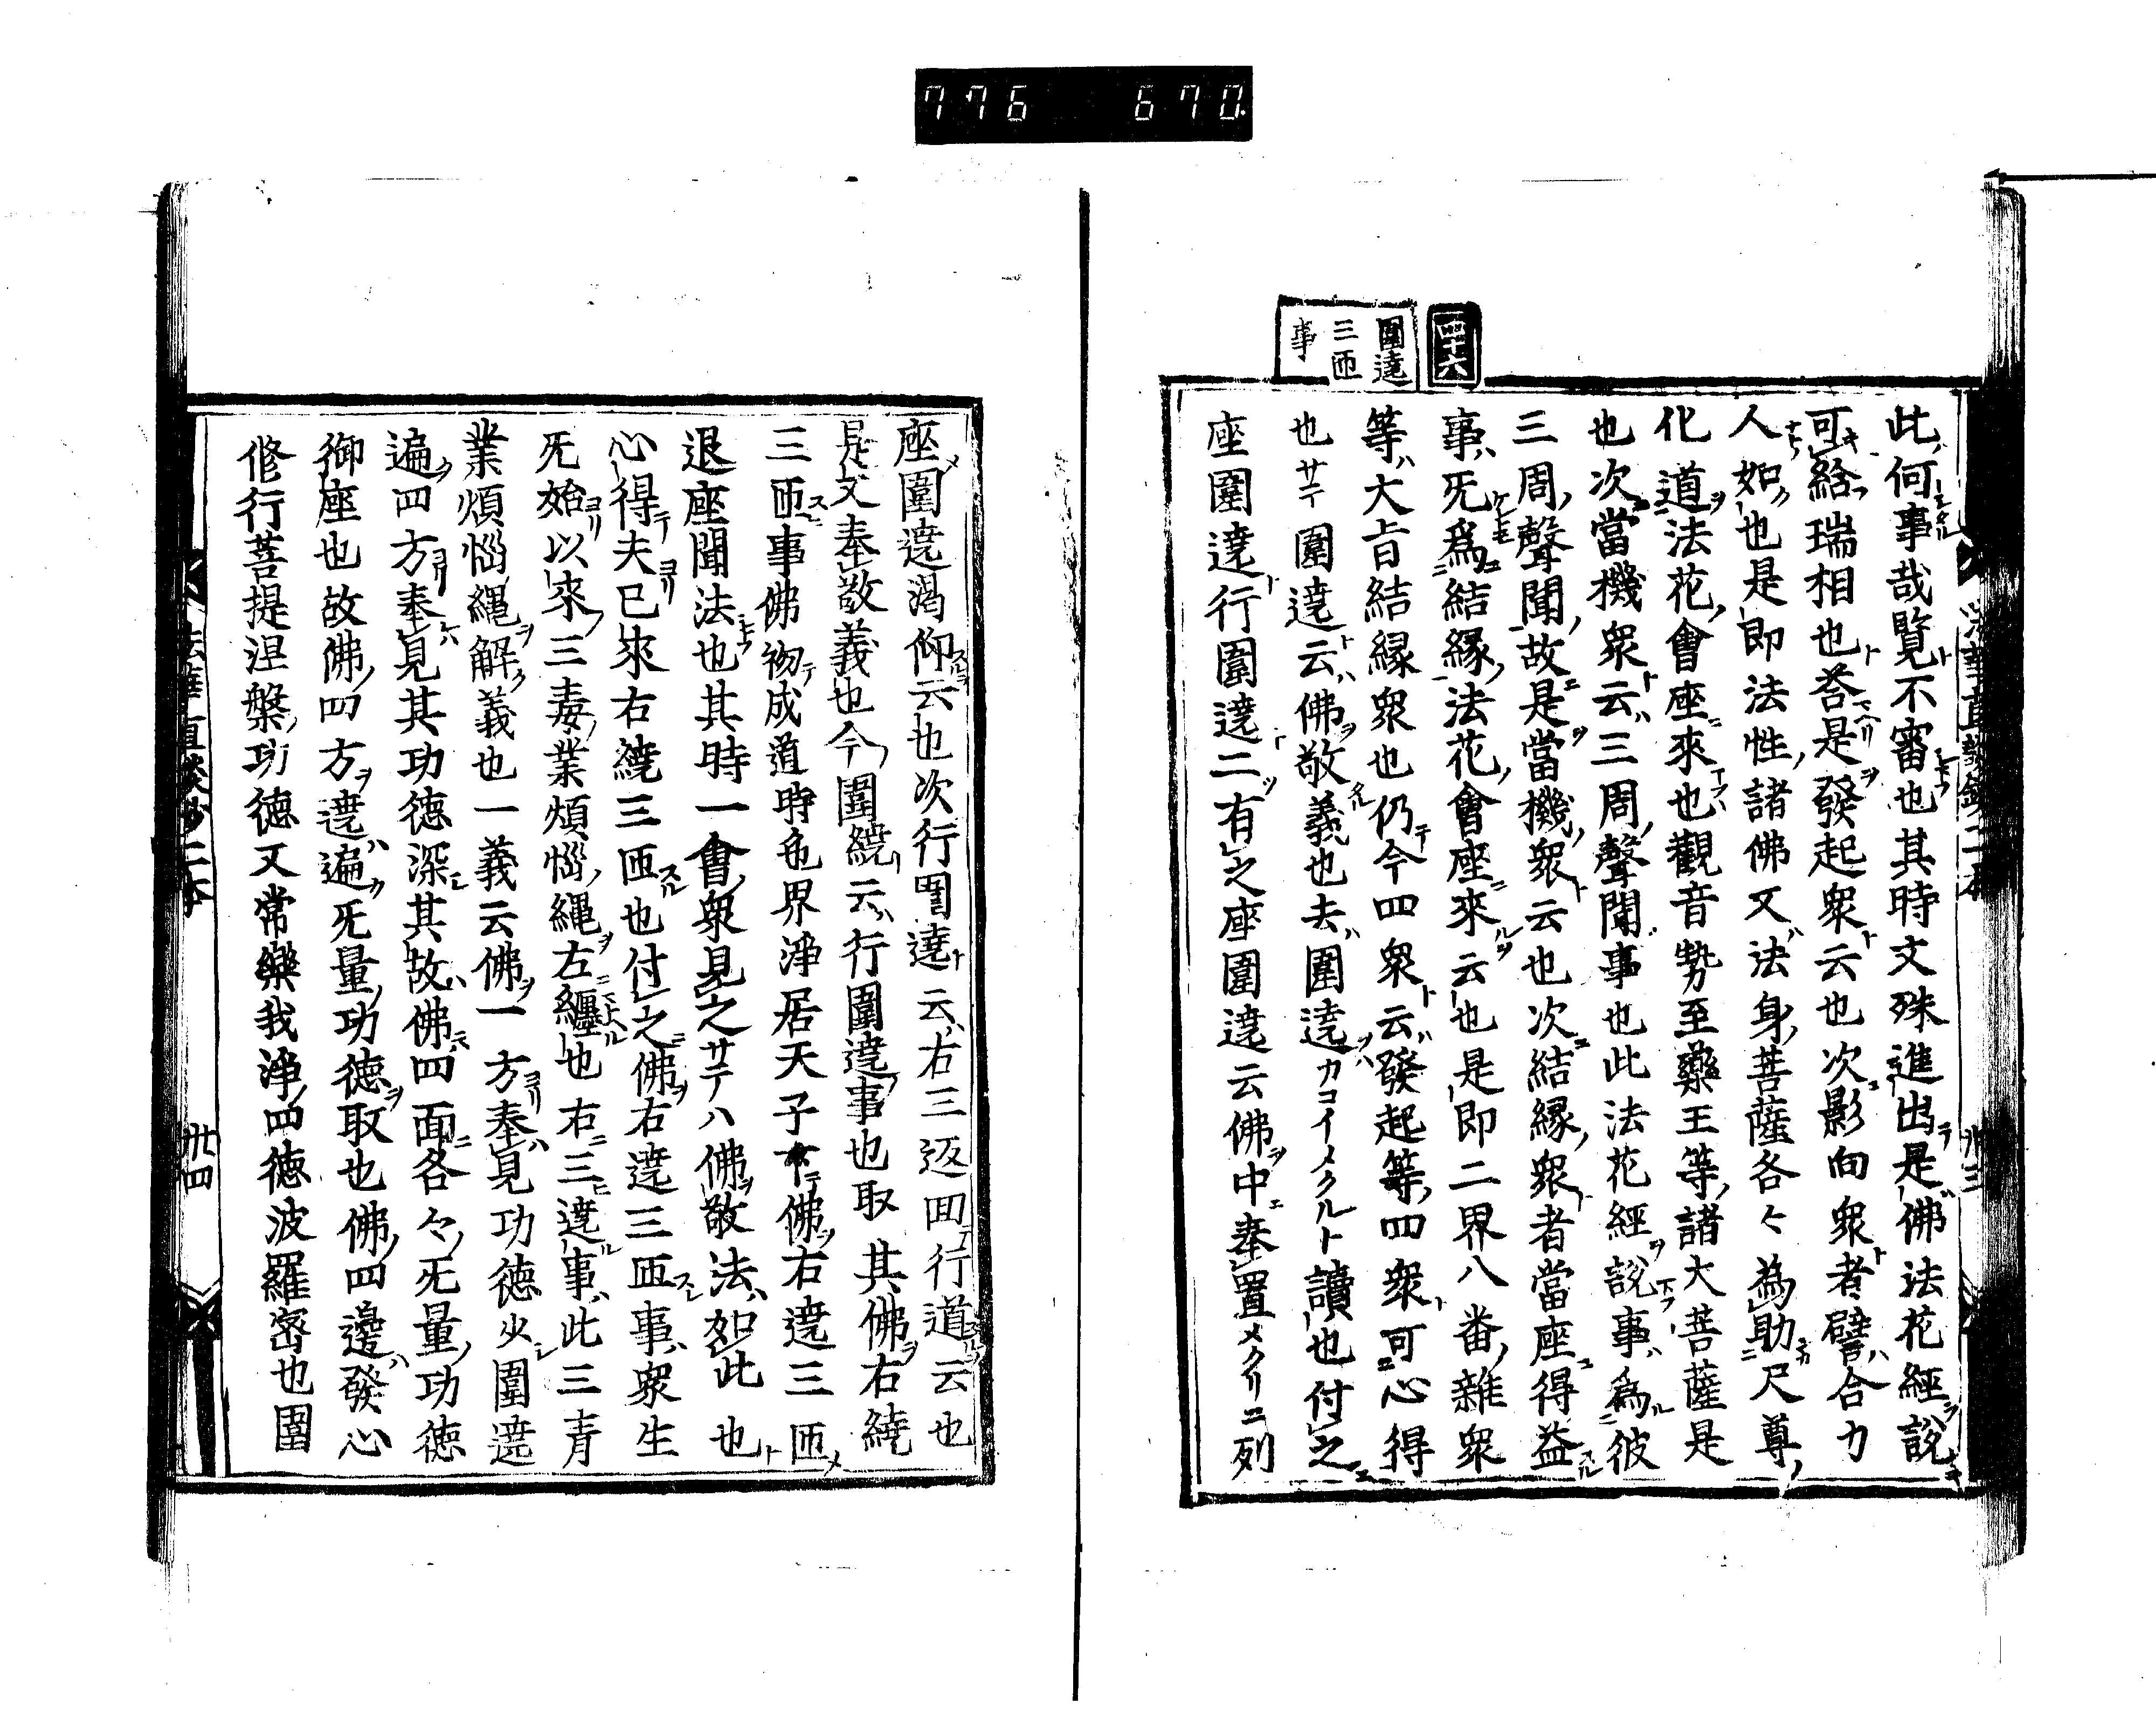 776 670
四十六
圍遶
三匝
事
此何事哉覧不審也其時文殊進出是佛法花經説
可給瑞相也荅是發起衆云也次影向衆者譬合力
人如也是即法性諸佛又法身菩薩各々為助尺尊
化道法花會座來也觀音勢至藥王等諸大菩薩是
也次當機衆云三周聲聞事也此法花經説事為彼
三周聲聞故是當機衆云也次結縁衆者當座得益
事无為結縁法花會座來云也是即二界八畨雜衆
等大旨結縁衆也仍今四衆云發起等四衆可心得
也サテ圍遶云佛敬義也去圍遶カコイメクルト讀也付之
座圍遶行圍遶二有之座圍遶云佛中奉置メクリニ列
座圍遶渇仰云也次行圍遶云右三返回行道云也
是文奉敬義也今圍繞云行圍遶事也取其佛右繞
三匝事佛初成道時色界淨居天子下佛右遶三匝
退座聞法也其時一會衆見之サテハ佛敬法如此也
心得夫已來右繞三匝也付之佛右遶三匝事衆生
无始以來三毒業煩惱繩左纏也右三遶事此三毒
業煩惱繩解義也一義云佛一方奉見功徳少圍遶
遍四方奉見其功徳深其故佛四面各々无量功徳
御座也故佛四方遶遍无量功徳取也佛四邊發心
修行菩提涅槃功徳又常樂我淨四徳波羅蜜也圍
法華直談鈔二本
廿四